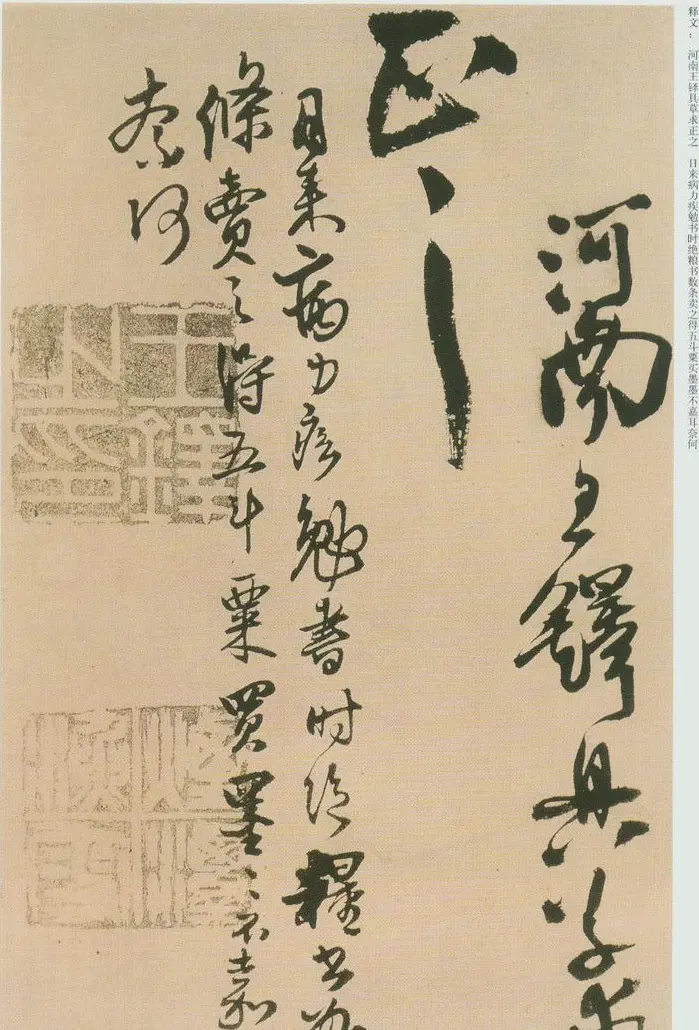 释文： 河南王铎具草求正之 日来病力疾勉书时绝粮书数条卖之得五斗粟买墨墨不嘉耳奈何
河南王鐸具草求
正之
日來病力疾勉書时绝糧书数
條賣之得五斗粟買墨〻不嘉
柰何
王鐸之印